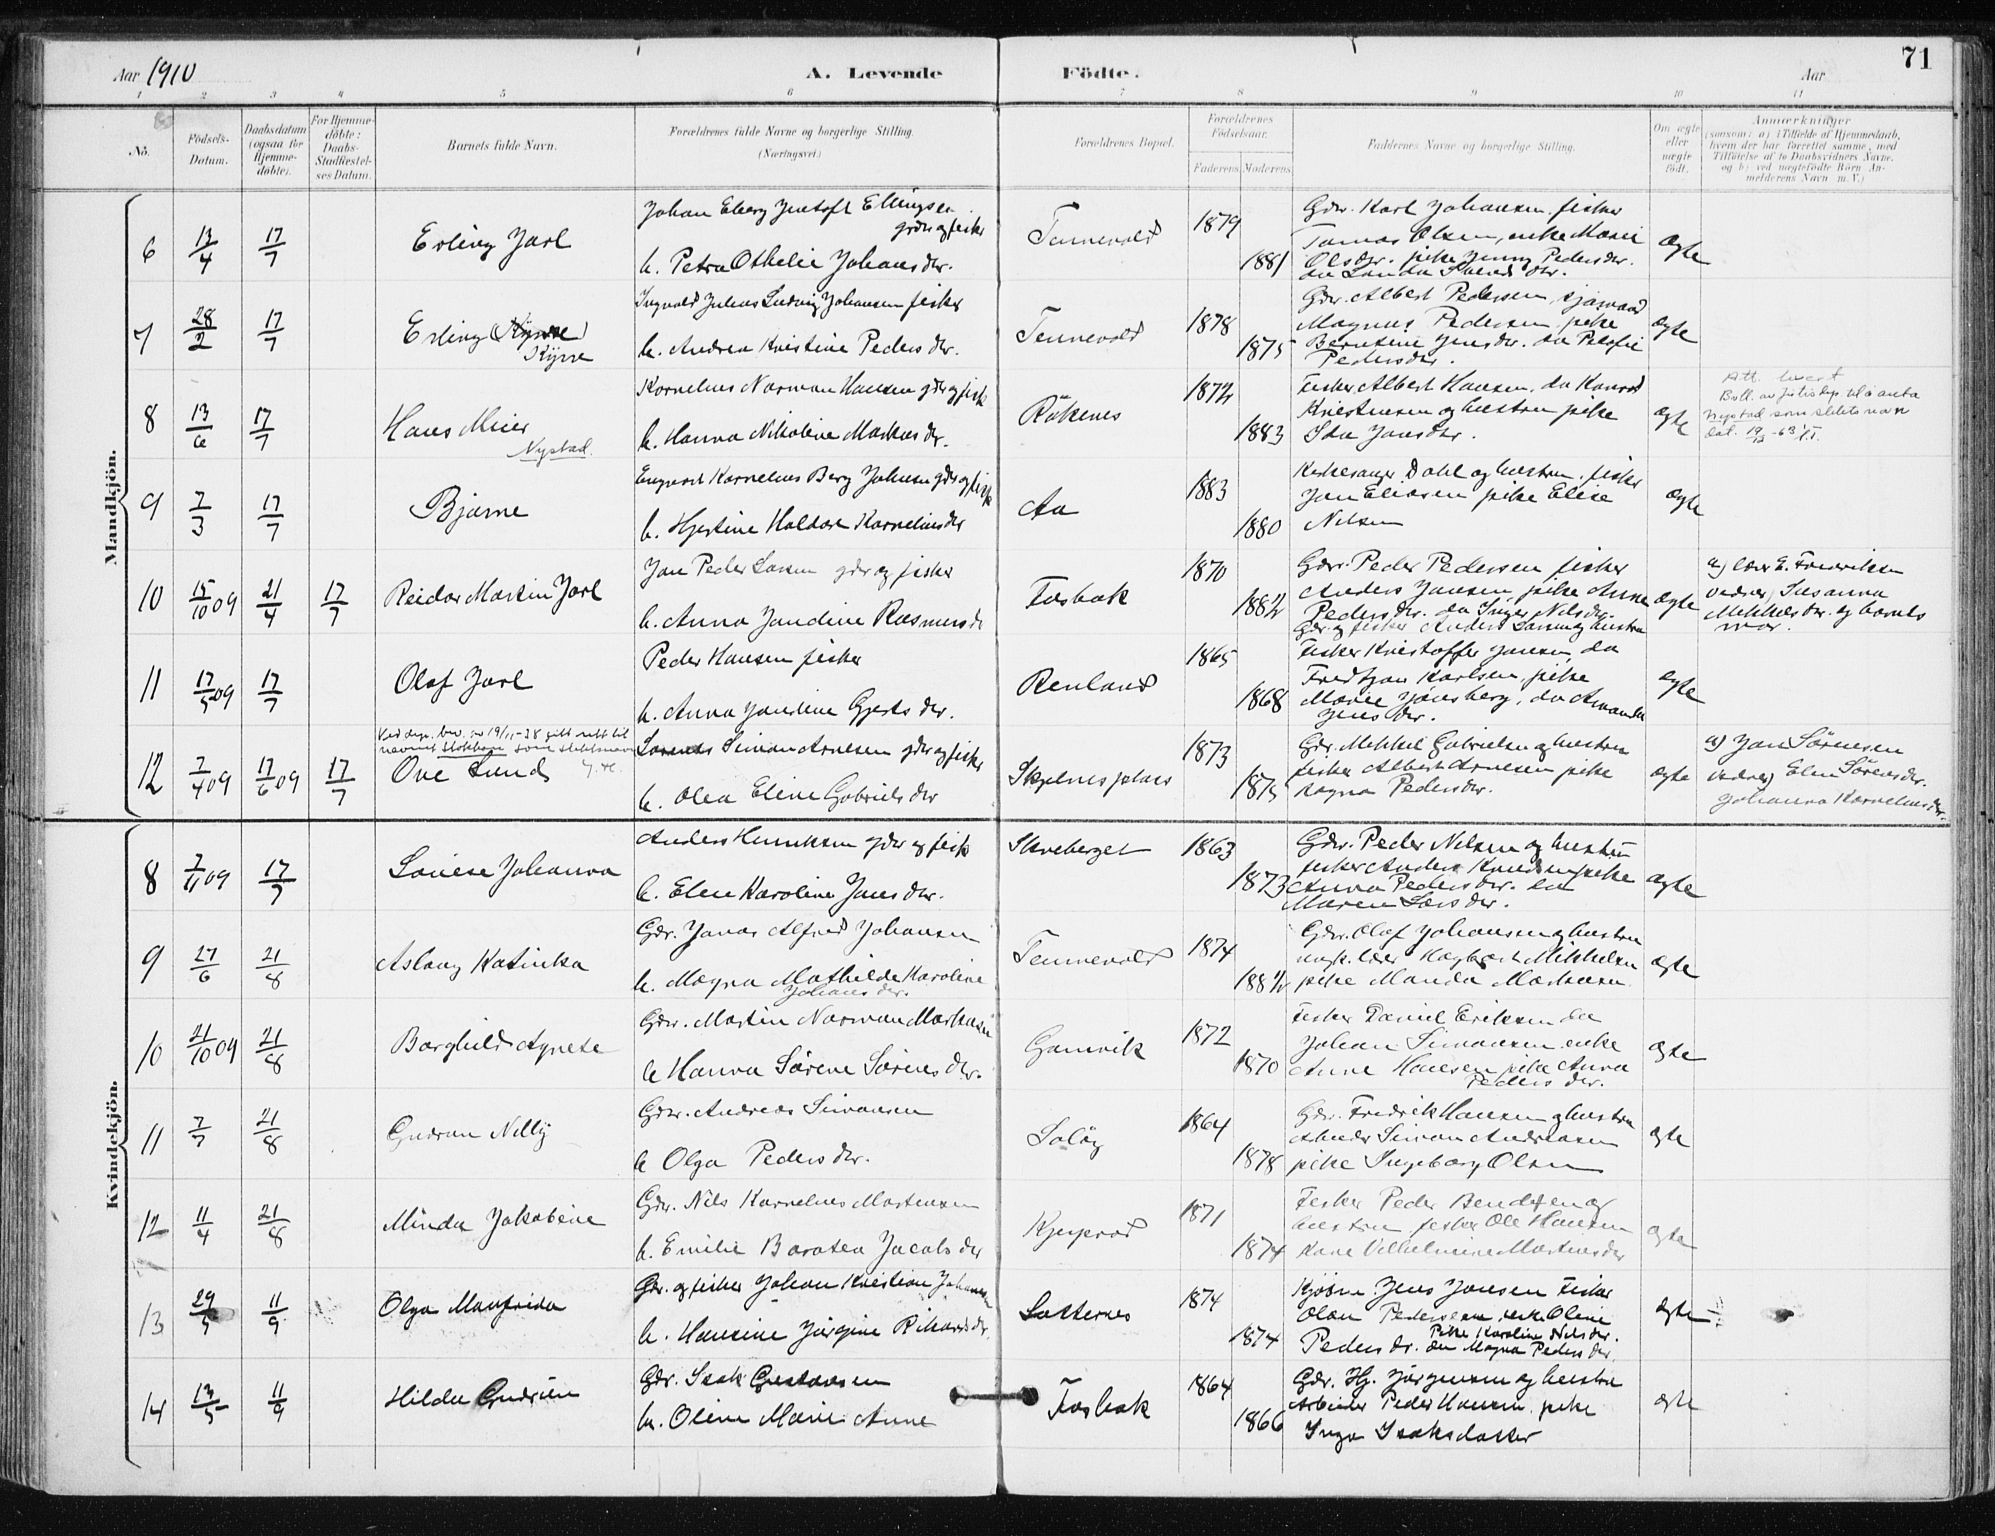 71
Aar 1910
A. Levende
Födte.
Aar
1 2 3 4 5 6 7 8 9 10 11
No.
Födsels-Datum.
Daabsdatum (ogsaa for Hjemme-döbte).
For Hjemme-döbte: Daabs-Stadfæstel-ses Datum.
Barnets fulde Navn.
Forældrenes fulde Navne og borgerlige Stilling. (Næringsvei.)
Forældrenes Bopæl.
Forældrenes Födselsaar.
Faderens Moderens
Faddernes Navne og borgerlige Stilling.
Om ægte eller uægte födt.
Anmærkninger
(saasom: a) i Tilfælde af Hjemmedaab, hvem der har forrettet samme, med Tilföielse af to Daabsvidners Navne. og b) ved uægtefödte Börn An-melderens Navn m. V.)
Mandkjön.
6 13/4 17/7 Erling Jarl
Johan Eberg Ellingsen gdr og fisker
h. Petra Othelie Johansdtr.
Tennevold 1879 1881
Gdr. Karl Johansen, fisker
Tomas Olsen, enke Marie
Olsdtr. pike Jenny Pedersdtr.
ægte
7 28/2 17/7 Erling Kyrre
Ingvald Julius Ludvig Johansen fisker
h. Andrea Kristine Pedersdtr.
Tennevold 1878 1875
Gdr. Albert Pedersen, sjømand
Magnus Pedersen, pike
Berntine Jensdtr. do
Pedersdtr.
ægte
8 13/6 17/7 Hans Meier
Nystad.
Kornelius Norman Hansen gdr og fisk
h. Hanna Nikoline Markusdtr.
Råkenes 1872 1883
Fisker Albert Hansen, do Konrad
Kristensen og hustru pike
Ida Jonsdtr.
ægte
Nystad som slektsnavn
9 7/3 17/7 Bjarne
Engvart Kornelius Berg Johnsen gdr og fisk
h. Hjertine Haldore Korneliusdtr
Aa 1883 1880
Kirkesanger Dahl og hustru, fisker
Jan Eliasen pike Elise
Nilsen
ægte
10 15/10 09 21/4 17/7 Reidar Martin Jarl
Jan Peder Larsen gdr og fisker
h. Anna Jandine Rasmusdt
Fosbak 1870 1882
Gdr. Peder Pedersen fisker
Anders Jansen, pike Anne
Pedersdtr. do Inger Nilsdtr.
Gdr. og fisker Anders Larsen og hustru
ægte
a) lærer E. Fredriksen
vidner Susanna
Mikkelsdtr. og barnets
mor.
11 17/5 09 17/7 Olaf Jarl
Peder Hansen fisker
h. Anna Jandine Gjertsdtr.
Renland 1865 1868
Fisker Kristoffer Jansen, do
Fredtjan Karlsen, pike
Marie Jönsberg, do Amanda
Jensdtr.
ægte
12 7/4 09 17/6 09 17/7
navnet Stokbarn som slektsnavn
Ove Lund
Simon Arnesen gdr og fisker
h. Olea Eline Gabrielsdtr
1873 1875
Gdr. Mikkel Gabrielsen og hustru
fisker Albert Arnesen pike
Ragna Pedersdtr.
ægte
a) Jan Sörensen
vidner) Elen Sörensdtr.
Johanna Korneliusdtr.
Kvindekjön.
8 7/11 09 17/7 Lovise Johanna
Anders Henriksen gdr og fisk
h. Elen Karoline Jansdtr.
Skreberget 1863 1873
Gdr. Peder Nilsen og hustru
fisker Anders Knudsen pike
Anna Pedersdtr. do
Maren Larsdtr.
ægte
9 27/6 21/8 Aslaug Katinka
Gdr. Jonas Alfred Johansen
h. Magna Mathilde Karoline
Johansdtr.
Tennevold 1874 1882
Gdr. Olaf Johansen og hustru
ungk. lærer Hagbart Mikkelsen
pike Manda Markusen
ægte
10 21/10 09 21/8 Borghild Agnete
Gdr. Martin Norman Markusen
h Hanna Sörine Sörensdtr.
Gamvik 1872 1870
Fisker Daniel Eriksen do
Johan Simonsen enke
Anne Hansen pike Anna
Pedersdtr.
ægte
11 7/7 21/8 Gudrun Nelly
Gdr. Andreas Simonsen
h Olga Pedersdtr.
Salöy 1864 1878
Gdr. Fredrik Hansen og hustru
Arbeider Simon Andreasen
pike Ingeborg Olsen
ægte
12 11/4 21/8 Minda Jakobine
Gdr. Nils Kornelius Mortensen
h. Emilie Baratea Jacobsdtr
1871 1874
Fisker Peder Bendtsen og
hustru, fisker Ole Hansen
kone Vilhelmine Martinsdtr
ægte
13 29/5 11/9 Olga Manfrida
Gdr. og fisker Johan Kristian Johansen
h. Hansine Jörgine Rikardsdtr.
Sætternes 1874 1874
Jens Jansen Fisker
Olav Pedersen, enke Oline
Pedersdtr. Pike Karoline Nilsdtr.
do Magna Pedersdtr.
ægte
14 13/5 11/9 Hilda Gudrun
Gdr. Isak Gustavsen
h. Oline Marie Anne
Fosbak 1864 1866
Gdr. Hj. Jörgensen og hustru
Arbeider Peder Hansen, pike
Inga Isaksdatter
ægte